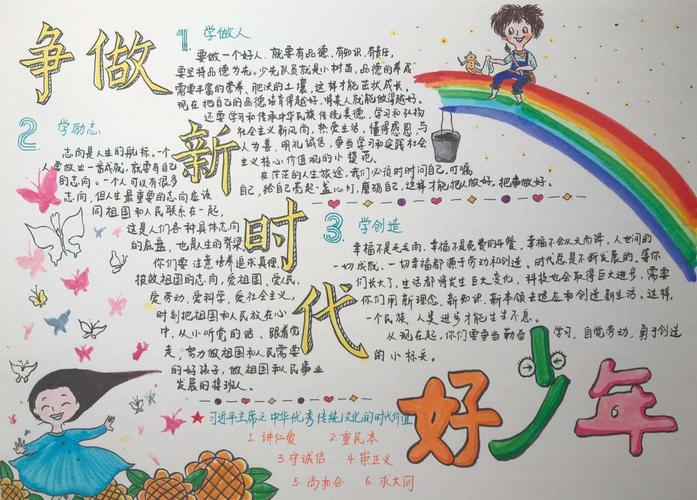 争做
新时代
好少年
1. 学做人
要做一个好人,就要有品德、有知识、有责任,
要坚持品德为先。少先队员就是小树苗,品德的养成
需要丰富的营养、肥沃的土壤,这样才能茁壮成长。
现在把自己的品德培育得越好,将来人就能做得越好。
还要学习和传承中华民族传统美德,学习和弘扬
社会主义新风尚,热爱生活,懂得感恩,与
人为善,明礼诚信,争当学习和实践社会
主义核心价值观的小模范。
在茫茫的人生旅途,我们必须时时问自己,叮嘱
自己,给自己亮起一盏心灯,磨砺自己,这样才能把人做好,把事做好。
2 学励志
志向是人生的航标。一个
人要做出一番成就,就要有自己
的志向。一个人可以有很多
志向,但人生最重要的志向应该
同祖国和人民联系在一起,
这是人们各种具体志向
的底盘,也是人生的脊梁。
你们要注意培养追求真理、
报效祖国的志向,爱祖国、爱人民、
爱劳动、爱科学、爱社会主义,
时刻把祖国和人民放在心
中,从小听党的话、跟着党
走,努力做祖国和人民需要
的好孩子,做祖国和人民事业
发展的接班人。
3. 学创造
幸福不是毛毛雨,幸福不是免费的午餐,幸福不会从天而降。人世间的
一切成就、一切幸福都源于劳动和创造。时代总是不断发展的,等你
们长大了,生活都将发生巨大变化,科技也会取得巨大进步,需要
你们用新理念、新知识、新本领去适应和创造新生活。这样,
一个民族、人类进步才能生生不息。
从现在起,你们要争当勤奋学习、自觉劳动、勇于创造
的小标兵。
★习近平主席之中华优秀传统文化的时代价值
1. 讲仁爱 2. 重民本
3. 守诚信 4. 崇正义
5. 尚和合 6. 求大同